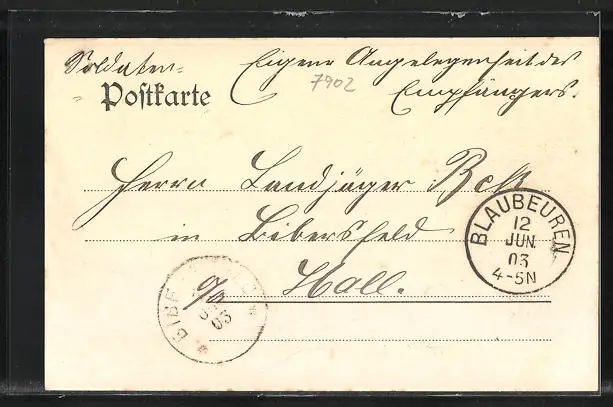 Soldaten= Eigene Angelegenheit des
" Postkarte Empfängers.
7902
Herrn Landjäger
in Bibersfeld
Hall.
BLAUBEUREN
12
JUN.
03
4-5N
BIBE
03